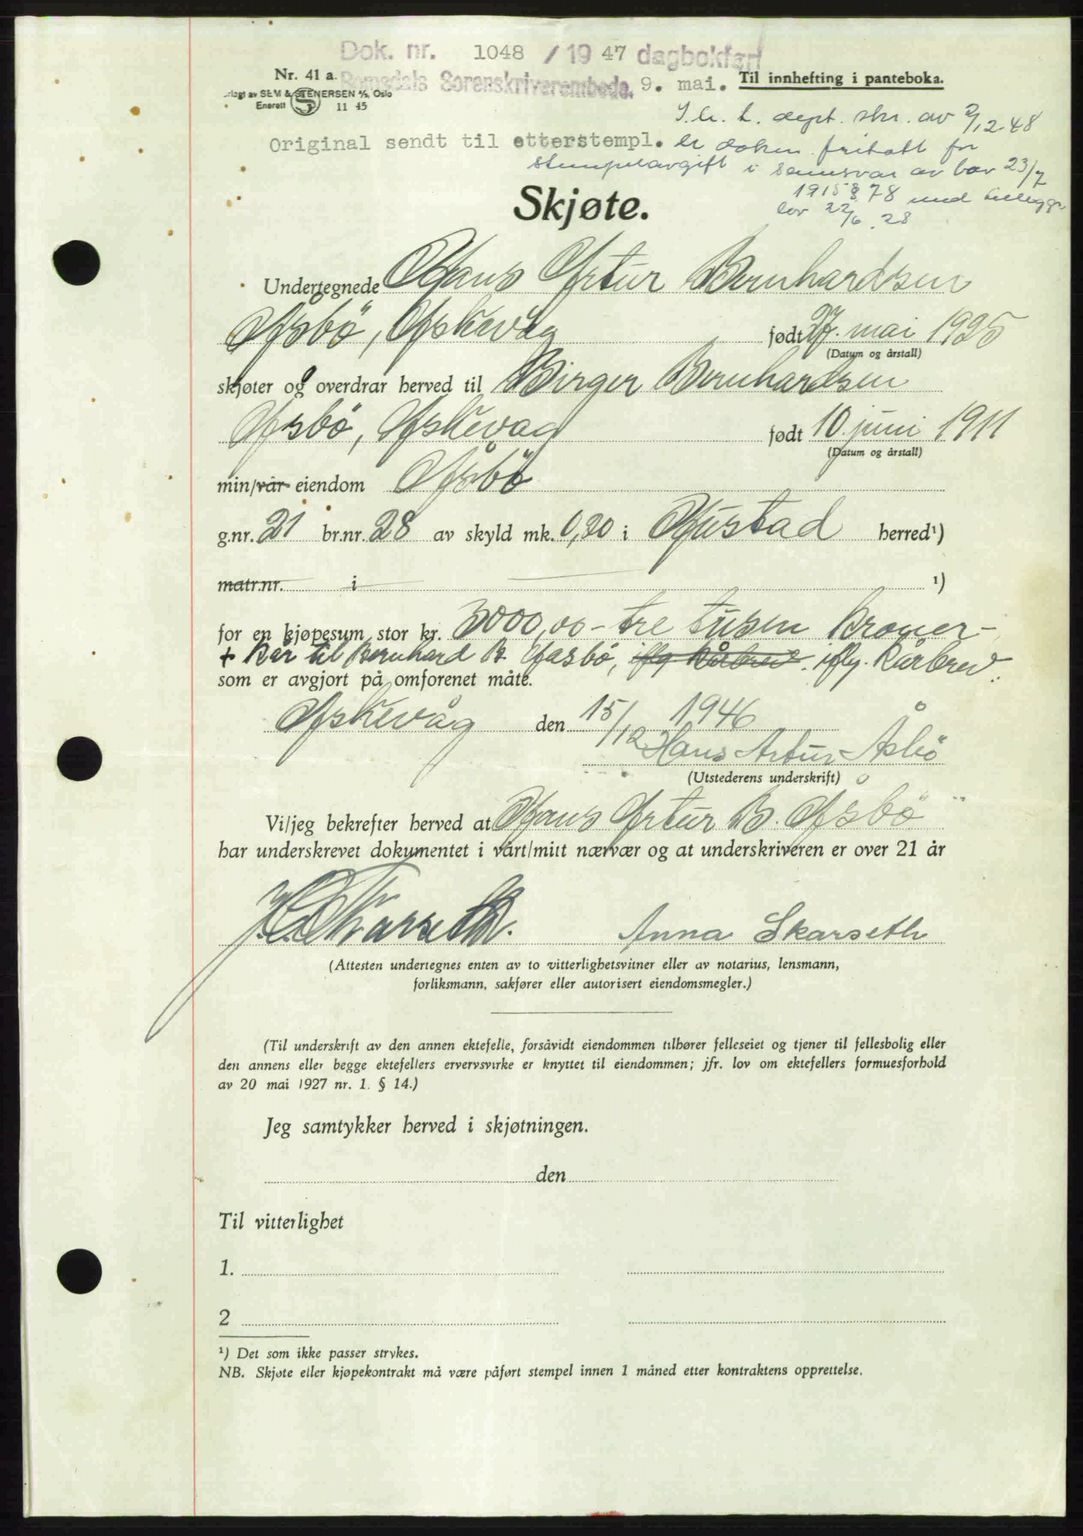 Dok. nr. 1048 / 19 47 dagbokført
Nr. 41 a.
Romsdals Sorenskriverembede. 9. mai. Til innhefting i panteboka.
SEM & STENERSEN A/S Oslo
Enerett S 11 45
I.h.t. dept. skr. av 2/12-48
Original sendt til etterstempl. er dokm. fritatt for
stempelavgift i samsvar av lov 23/7
1915 § 78 med tillegg
lov 22/6.28
Skjøte.
Undertegnede Hans Artur Bernhardsen
Åsbö, Askevåg født 27. mai 1925
(Datum og årstall)
skjøter og overdrar herved til Birger Bernhardsen
Åsbö, Askevåg født 10. juni 1911
(Datum og årstall)
min/vår eiendom Åsbö
g.nr. 21 br.nr. 28 av skyld mk. 0,20 i Hustad herred¹)
matr.nr. i ¹)
for en kjøpesum stor kr. 3000,00 - tre tusen kroner -
+ kår til Bernhard B. Aasbö, iflg kårbrev. iflg. kårbrev.
som er avgjort på omforenet måte.
Askevåg den 15/12 1946
Hans Artur Åsbö
(Utstederens underskrift)
Vi/jeg bekrefter herved at Hans Artur B. Åsbö
har underskrevet dokumentet i vårt/mitt nærvær og at underskriveren er over 21 år
Skarseth. Anna Skarseth
(Attesten undertegnes enten av to vitterlighetsvitner eller av notarius, lensmann,
forliksmann, sakfører eller autorisert eiendomsmegler.)
(Til underskrift av den annen ektefelle, forsåvidt eiendommen tilhører felleseiet og tjener til fellesbolig eller
den annens eller begge ektefellers ervervsvirke er knyttet til eiendommen; jfr. lov om ektefellers formuesforhold
av 20 mai 1927 nr. 1. § 14.)
Jeg samtykker herved i skjøtningen.
den
Til vitterlighet
1.
2
¹) Det som ikke passer strykes.
NB. Skjøte eller kjøpekontrakt må være påført stempel innen 1 måned etter kontraktens opprettelse.